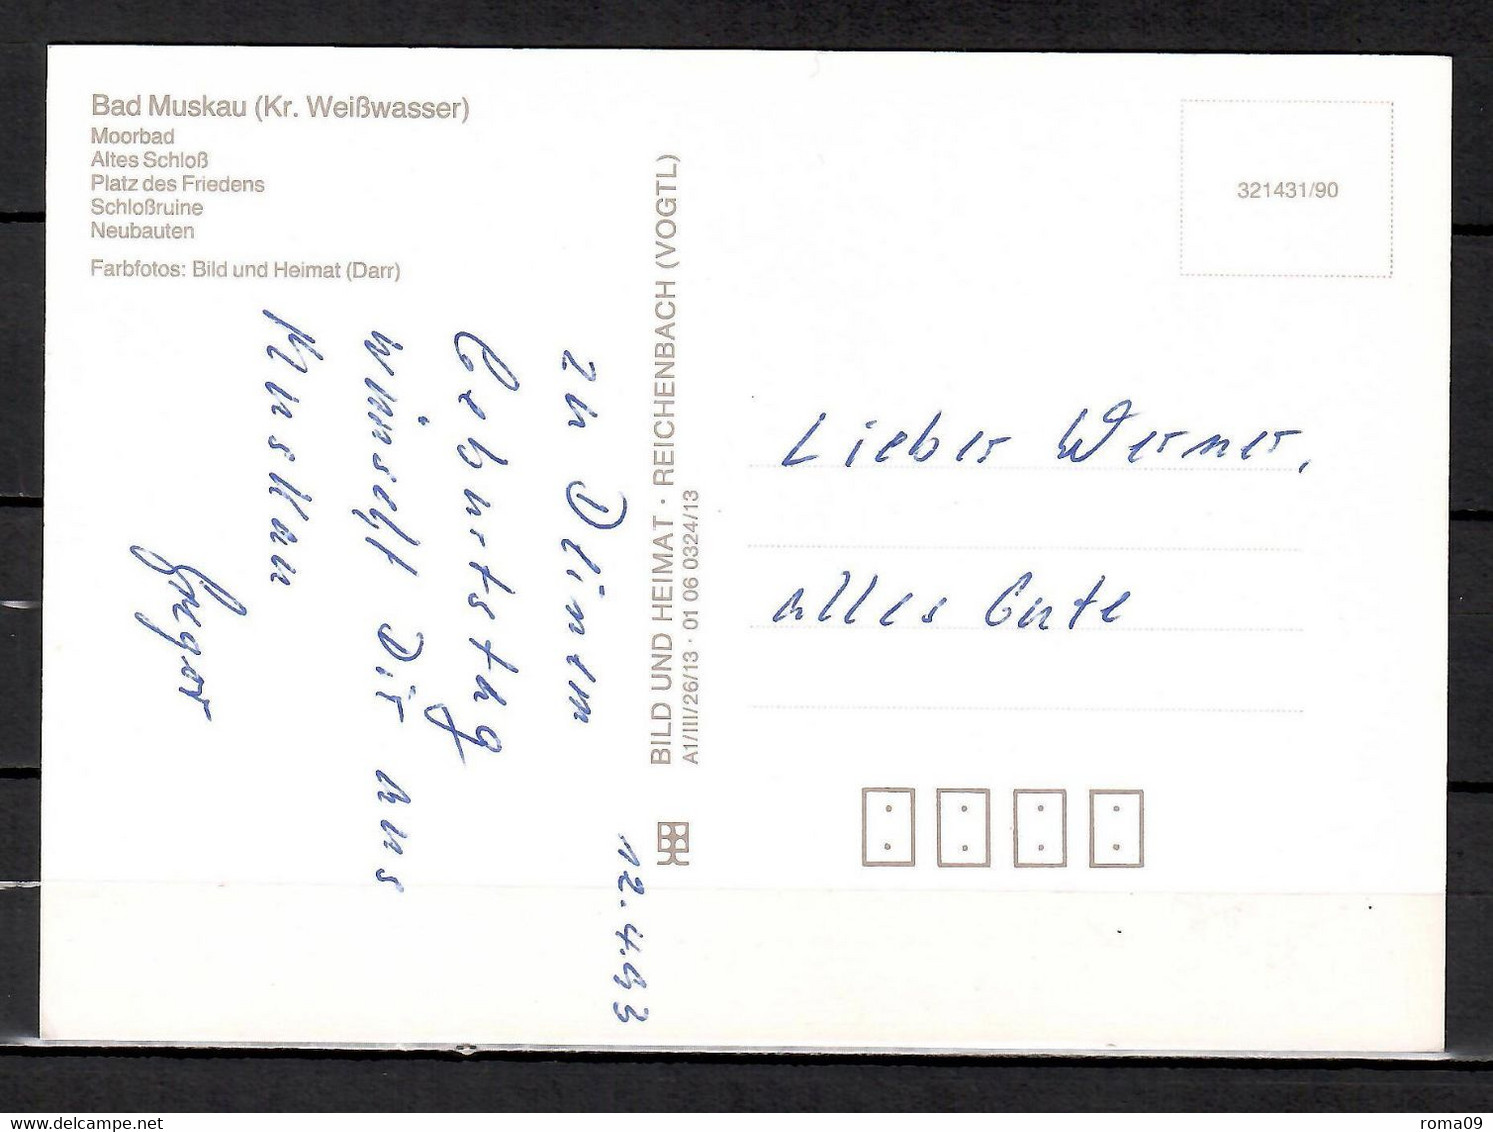 Bad Muskau (Kr. Weißwasser)
Moorbad
Altes Schloß
Platz des Friedens
Schloßruine
Neubauten
Farbfotos: Bild und Heimat (Darr)
321431/90
BILD UND HEIMAT · REICHENBACH (VOGTL)
A1/III/26/13 · 01 06 0324/13
Lieber Werner,
alles Gute
12.4.93
zu Deinem
Geburtstag
wünscht Dir aus
Muskau
Gregor
roma09